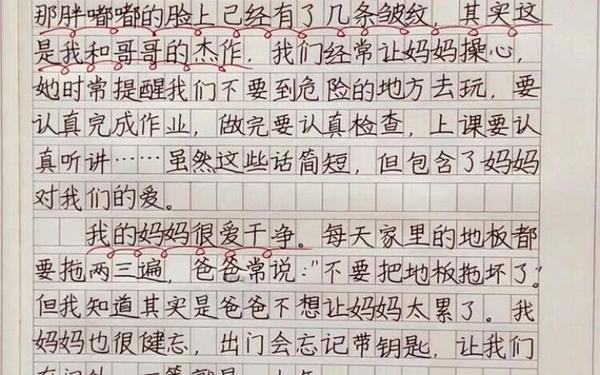 那胖嘟嘟的脸上已经有了几条皱纹，其实这
是我和哥哥的杰作，我们经常让妈妈操心，
她时常提醒我们不要到危险的地方去玩，要
认真完成作业，做完要认真检查，上课要认
真听讲……虽然这些话简短，但包含了妈妈
对我们的爱。
我的妈妈很爱干净。每天家里的地板都
要拖两三遍，爸爸常说："不要把地板拖坏了。"
但我知道其实是爸爸不想让妈妈太累了。我
妈妈也很健忘，出门会忘记带钥匙，让我们